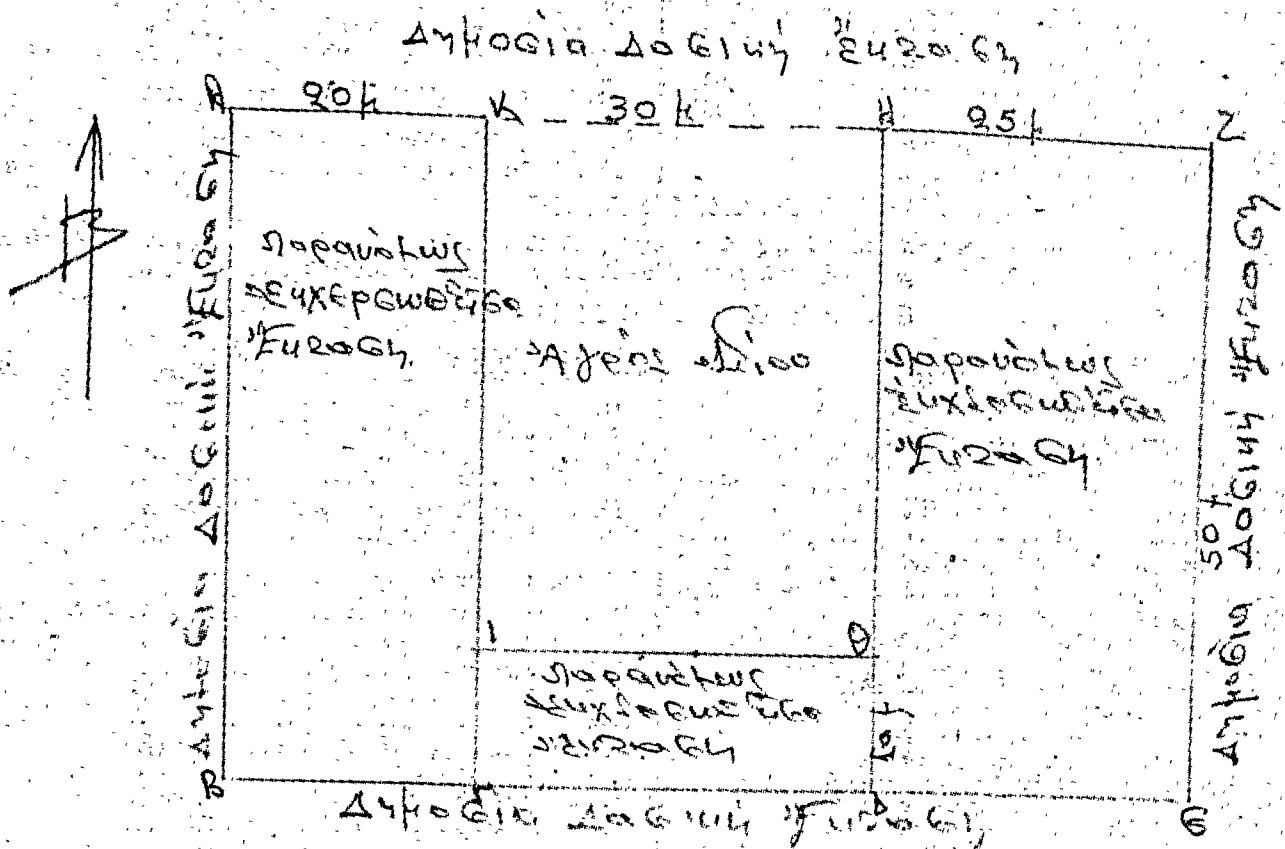 Δημοσία Δασική Ἔκταση
Α 20μ Κ 30μ Η 25μ Ζ
Δημοσία Δασική Ἔκταση
Παρανόμως
ἐκχερσωθεῖσα
Ἔκταση
Ἀγρός
Παρανόμως
ἐκχερσωθεῖσα
Ἔκτασις
Δημοσία Δασική Ἔκταση
50μ
Ι Θ
Παρανόμως
ἐκχερσωθεῖσα
ἔκταση
Β Γ Δ Ε
Δημοσία Δασική Ἔκταση